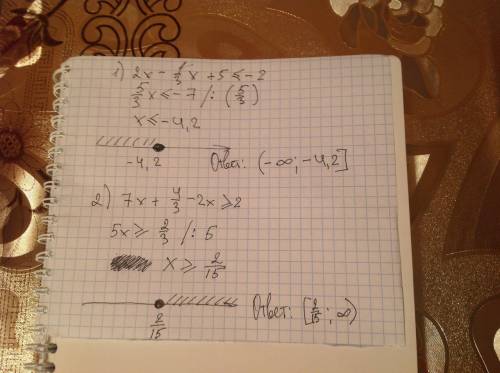 1) 2x - 1/3 x + 5 ≤ -2
5/3 x ≤ -7 /: (5/3)
x ≤ -4,2
-4,2 Ответ: (-∞; -4,2]
2) 7x + 4/3 - 2x ≥ 2
5x ≥ 2/3 /: 5
x ≥ 2/15
2/15 Ответ: [2/15; ∞)